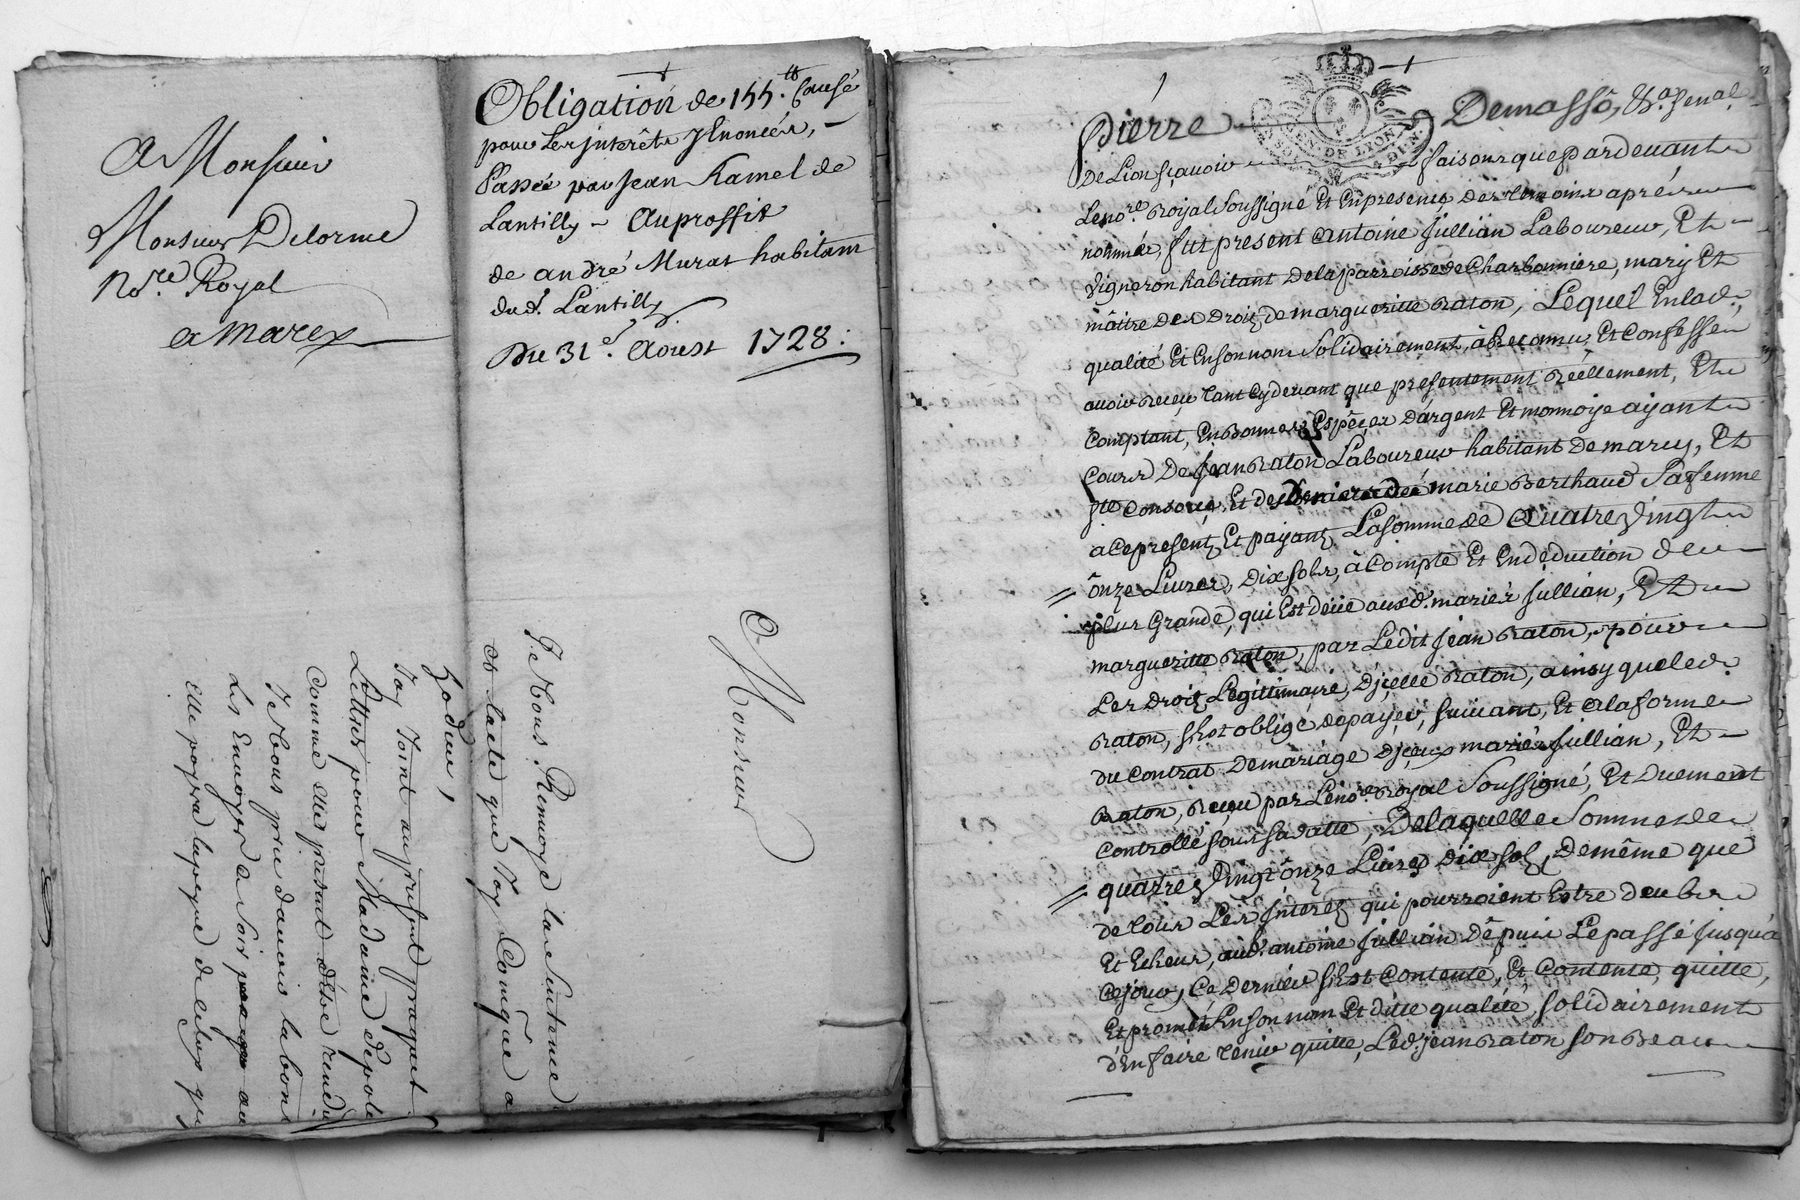 A Monsieur
Monsieur Delorme
No.re Royal
a Marcy
Obligation de 155.tt Causé
pour Les jnterêts Enoncés,
Passée par Jean Kamel de
Lantilly - Auproffit
de andré Murat habitant
dud. Lantilly.
Du 31e. Aoust 1728.
Monsieur
Je Vous Renvoye la Sentence
et lacte que Jay Comque a
Jay Joint au present paquet
Lettres pour Madame depole
Comme elles peut dêtre rendu
Je Vous prie davoir la bont
Les Envoyer a Soir au
Elle payra la peyne de celuy qu
Pierre Demasso, Sénal
GEN. DE LION
De Lion sçavoir faisons que Pardevant
Le no.re Royal Soussigné Et En presence des temoins aprés
nommés, fut present Antoine Jullian Laboureur, Et
Vigneron habitant Dela parroisse de Charbonniere, mary Et
mâitre des Droitz de margueritte Raton, Lequel En lad.
qualité Et En son nom Solidairement, à Reconnu, Et Confessé
avoir Receu tant cydevant que presentement Réellement, Et
Comptant, En Bonnes Espêces D'argent Et monnoye ayant
Cours De Jean Raton Laboureur habitant De marcy, Et
Et des Deniers de marie Berthaud Sa femme
a Ce presentz Et payantz La somme de Quatre Vingt
Onze Livres, Dix sols, à Compte Et En deduction de
plus Grande, qui Est deüe aux d. mariés Jullian, Et
margueritte Raton, par Ledit Jean Raton, pour
Les Droitz Legitimaire, D'jcelle Raton, ainsy que led.
Raton, s'Est obligé de payer, suivant, Et a la forme
du Contrat De mariage D'jceux mariés Jullian, Et
Raton, Reçu par Le no.re Royal Soussigné, Et Duement
Controllé sous sa datte, De laquelle Somme de
quatre Vingt onze Livres Dix sols, De même que
de tous Les Jnterêtz qui pourroient Estre deubs
Et Echeus, aud. antoine Jullian Dêpuis Le passé Jusqu'à
Ce jour, Ce Dernier s'Est Contenté, Et Contente, quitte,
Et promet En son nom Et ditte qualité solidairement
d'En faire tenir quitte, Led. Jean Raton son Beau